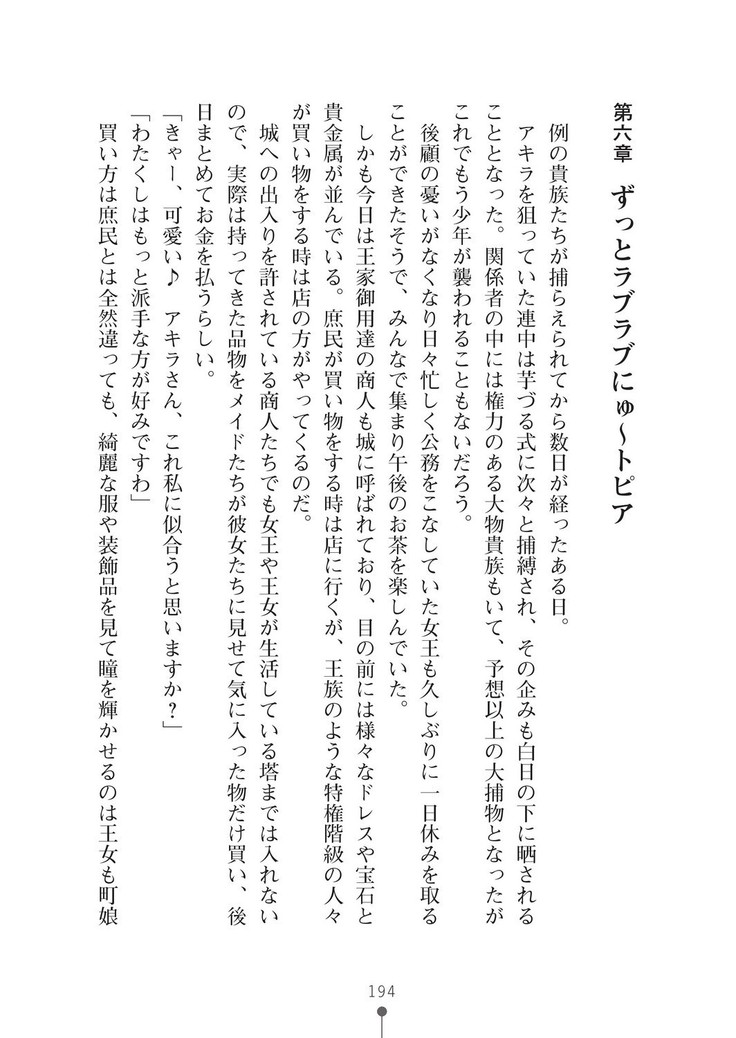 第六章　ずっとラブラブにゅ～トピア
　例の貴族たちが捕らえられてから数日が経ったある日。
　アキラを狙っていた連中は芋づる式に次々と捕縛され、その企みも白日の下に晒される
こととなった。関係者の中には権力のある大物貴族もいて、予想以上の大捕物となったが
これでもう少年が襲われることもないだろう。
　後顧の憂いがなくなり日々忙しく公務をこなしていた女王も久しぶりに一日休みを取る
ことができたそうで、みんなで集まり午後のお茶を楽しんでいた。
　しかも今日は王家御用達の商人も城に呼ばれており、目の前には様々なドレスや宝石と
貴金属が並んでいる。庶民が買い物をする時は店に行くが、王族のような特権階級の人々
が買い物をする時は店の方がやってくるのだ。
　城への出入りを許されている商人たちでも女王や王女が生活している塔までは入れない
ので、実際は持ってきた品物をメイドたちが彼女たちに見せて気に入った物だけ買い、後
日まとめてお金を払うらしい。
「きゃー、可愛い♪　アキラさん、これ私に似合うと思いますか？」
「わたくしはもっと派手な方が好みですわ」
　買い方は庶民とは全然違っても、綺麗な服や装飾品を見て瞳を輝かせるのは王女も町娘
194